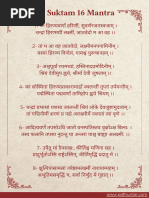 Suktam 16 Mantra
1- ॐ हिरण्यवर्णां हरिणीं, सुवर्णरजतस्रजाम् ।
चन्द्रां हिरण्मयीं लक्ष्मीं, जातवेदो म आ वह ।।
2- तां म आ वह जातवेदो, लक्ष्मीमनपगामिनीम् ।
यस्यां हिरण्यं विन्देयं, गामश्वं पुरुषानहम् ।।
3- अश्वपूर्वां रथमध्यां, हस्तिनादप्रमोदिनीम् ।
श्रियं देवीमुप ह्वये, श्रीर्मा देवी जुषताम् ।।
4- कां सोस्मितां हिरण्यप्राकारामार्द्रां ज्वलन्तीं तृप्तां तर्पयन्तीम् ।
पद्मेस्थितां पद्मवर्णां तामिहोप ह्वये श्रियम् ।।
5- चन्द्रां प्रभासां यशसा ज्वलन्तीं श्रियं लोके देवजुष्टामुदाराम् ।
तां पद्मिनीमीं शरणं प्र पद्ये अलक्ष्मीर्मे नश्यतां त्वां वृणे ।।
6- आदित्यवर्णे तपसोऽधि जातो वनस्पतिस्तव वृक्षोऽथ बिल्वः ।
तस्य फलानि तपसा नुदन्तु या अन्तरा याश्च बाह्या अलक्ष्मीः ।।
7- उपैतु मां दैवसखः, कीर्तिश्च मणिना सह ।
प्रादुर्भूतोऽस्मि राष्ट्रेऽस्मिन्, कीर्तिमृद्धिं ददातु मे ।।
8- क्षुत्पिपासामलां ज्येष्ठामलक्ष्मीं नाशयाम्यहम् ।